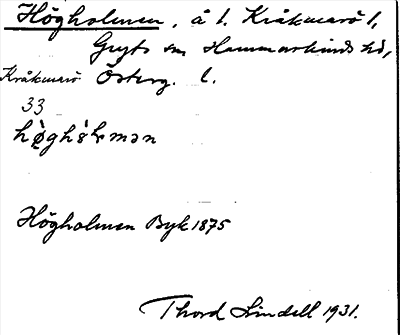 Högholmen, å l. Kråkmarö l,
Gryts sn Hammarkinds hd,
Kråkmarö Österg. l.
33
Högholmen Byk 1875
Thord Lindell 1931.